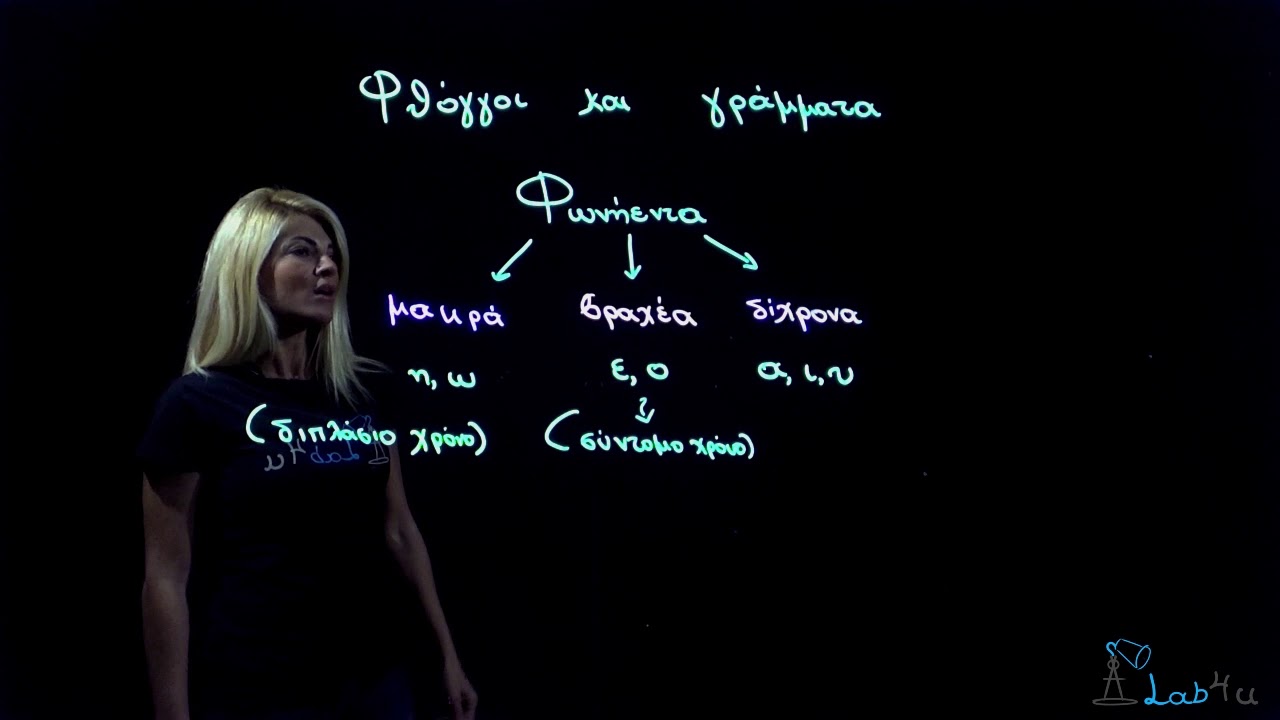 Φθόγγοι και γράμματα
Φωνήεντα
μακρά βραχέα δίχρονα
η, ω ε, ο α, ι, υ
(διπλάσιο χρόνο) (σύντομο χρόνο)
Lab4u
Lab4u